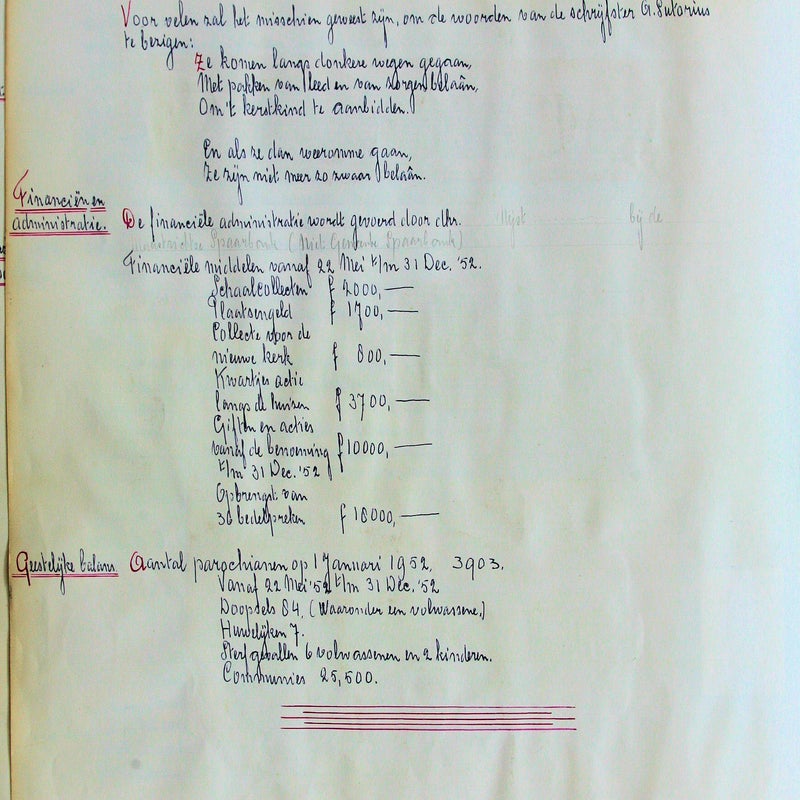 Voor velen zal het misschien geweest zijn, om de woorden van de schrijfster G. Sutorius
te bezigen:
Ze komen langs donkere wegen gegaan,
Met pakken van leed en van zorgen belaân,
Om 't kerstkind te aanbidden.
En als ze dan weeromme gaan,
Ze zijn niet meer zo zwaar belaân.
Financiën en
administratie.
De financiële administratie wordt gevoerd door dhr. bij de
Spaarbank (Niet Gemeente Spaarbank)
Financiële middelen vanaf 22 Mei t/m 31 Dec. '52.
Schaalcollecten f 2000,—
Plaatsengeld f 1700,—
Collecte voor de
nieuwe kerk f 800,—
Kwartjes actie
langs de huizen f 3700,—
Giften en acties
vanaf de benoeming f 10000,—
t/m 31 Dec. '52
Opbrengst van
36 bedelpreken f 18000,—
Geestelijke balans
Aantal parochianen op 1 Januari 1952, 3903.
Vanaf 22 Mei '52 t/m 31 Dec. '52
Doopsels 84. (Waaronder een volwassene.)
Huwelijken 7.
Sterfgevallen 6 volwassenen en 2 kinderen.
Communies 25,500.